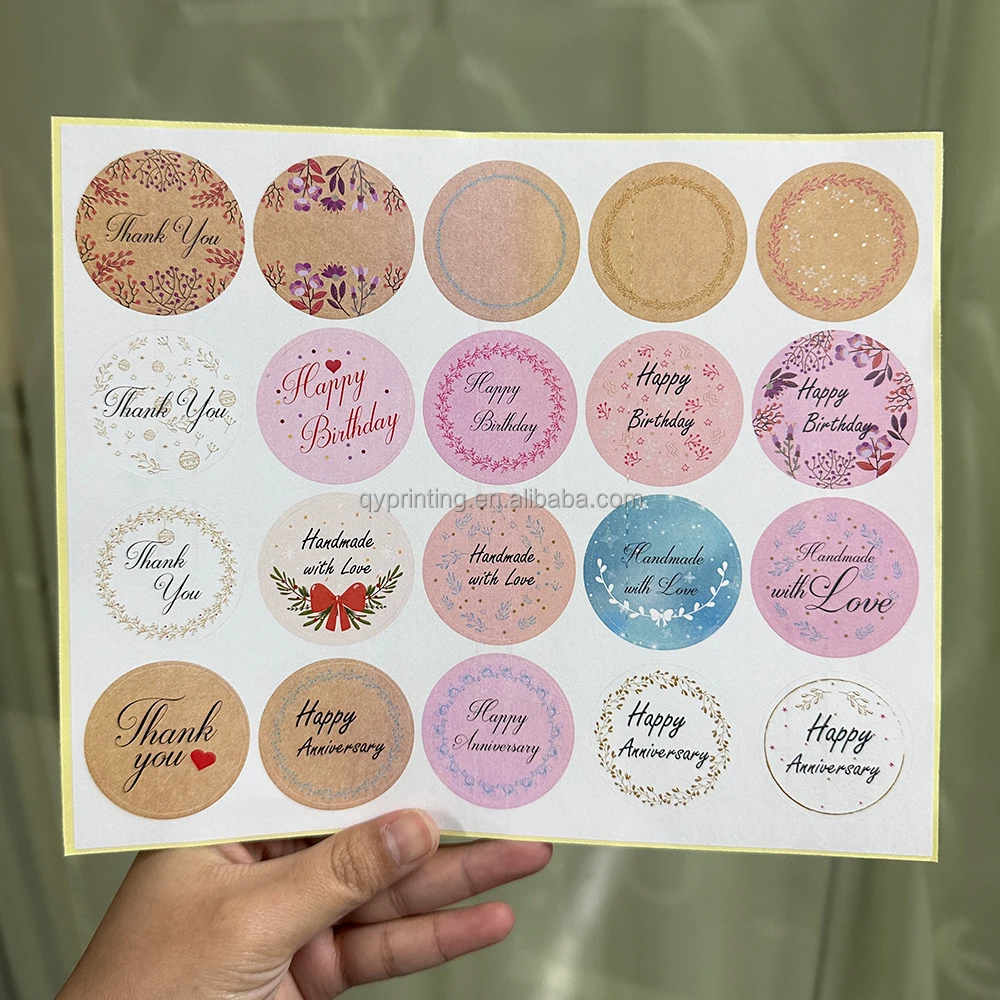 Thank You
Thank You
Happy
Birthday
Happy
Birthday
Happy
Birthday
Happy
Birthday
qyprinting.en.alibaba.com
Thank
You
Handmade
with Love
Handmade
with Love
Handmade
with Love
Handmade
with Love
Thank
you
Happy
Anniversary
Happy
Anniversary
Happy
Anniversary
Happy
Anniversary